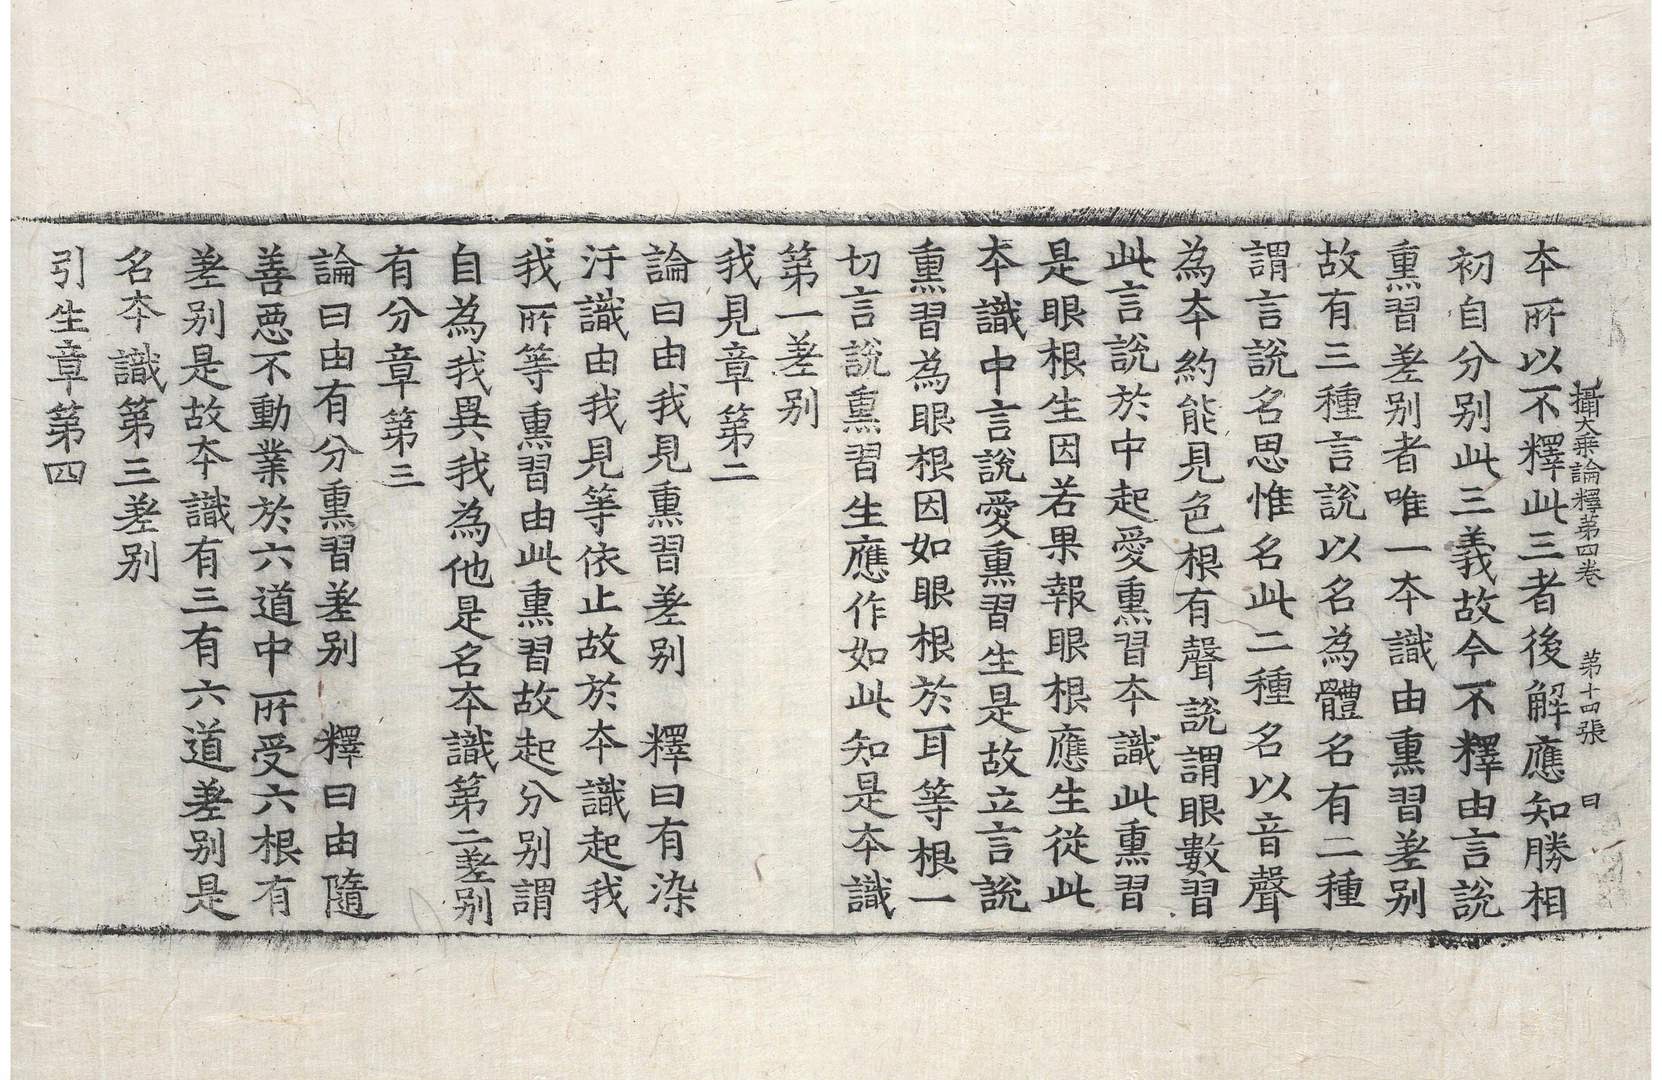 攝大乗論釋第四卷 第十四張 曰
夲所以不釋此三者後解應知勝相
初自分别此三義故今不釋由言說
熏習差别者唯一夲識由熏習差别
故有三種言說以名為體名有二種
謂言說名思惟名此二種名以音聲
為夲約能見色根有聲說謂眼數習
此言說於中起愛熏習夲識此熏習
是眼根生因若果報眼根應生從此
夲識中言說愛熏習生是故立言說
熏習為眼根因如眼根於耳等根一
切言說熏習生應作如此知是夲識
第一差别
我見章第二
論曰由我見熏習差别 釋曰有染
汙識由我見等依止故於夲識起我
我所等熏習由此熏習故起分别謂
自為我異我為他是名夲識第二差别
有分章第三
論曰由有分熏習差别 釋曰由隨
善惡不動業於六道中所受六根有
差别是故夲識有三有六道差别是
名夲識第三差别
引生章第四